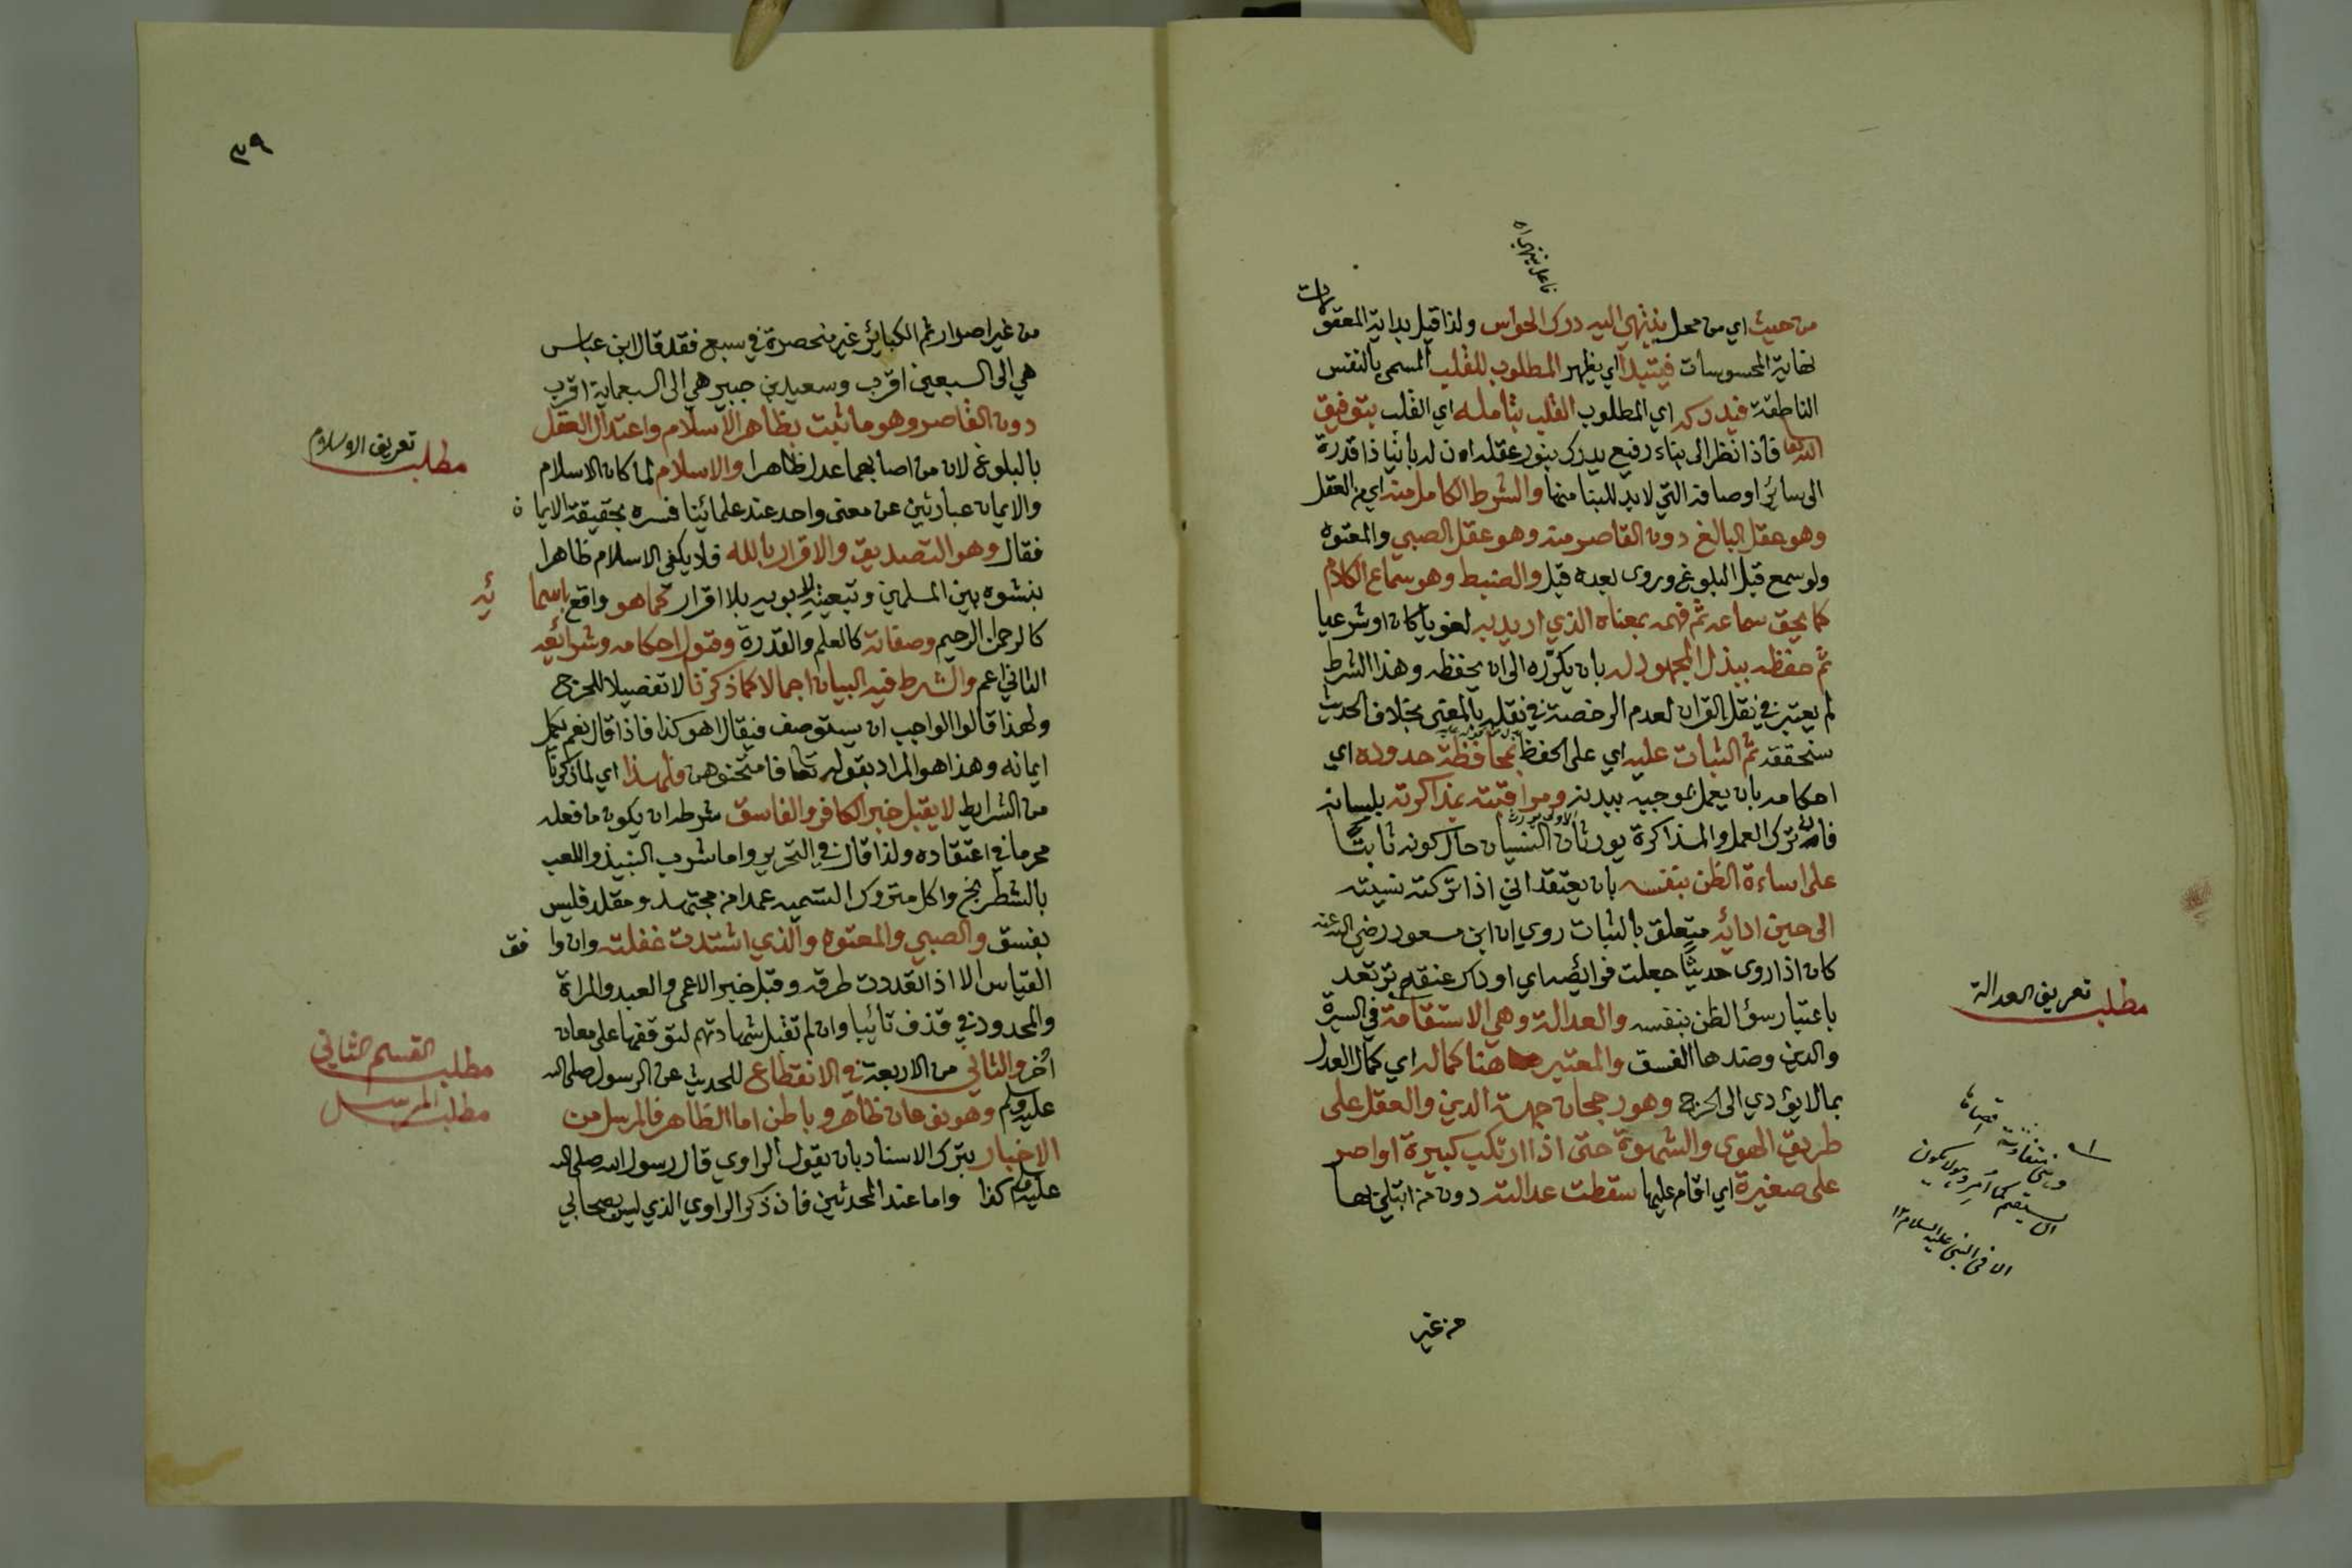 فاعل ينتهي اه
من حيث اي من محل ينتهي اليه درك الحواس ولذا قيل بداية المعقولات
نهاية المحسوسات فيبتدأ اي يظهر المطلوب للقلب المسمى بالنفس
الناطقة فيدركه اي المطلوب القلب بتأمله اي القلب بتوفيق
الله تعالى فاذا نظر الى بناء رفيع يدرك بنور عقله ان له بانيا ذا قدرة
الى سائر اوصافه التي لا بد للبنا منها والشرط الكامل منه اي من العقل
وهو عقل البالغ دون القاصر منه وهو عقل الصبي والمعتوه
ولو سمع قبل البلوغ وروى بعده قبل والضبط وهو سماع الكلام
كما يحق سماعه ثم فهمه بمعناه الذي اريد به لغويا كان او شرعيا
ثم حفظه ببذل المجهود له بان يكرّره الى ان يحفظه وهذا الشرط
لم يعتبر في نقل القران لعدم الرخصة في نقله بالمعنى بخلاف الحديث
سنحققه ثم الثبات عليه اي على الحفظ بمحافظة حدوده اي
احكامه بان يعمل بموجبه ببدنه ومراقبته بمذاكرته بلسانه
فان ترك العمل والمذاكرة يورثان النسيان حال كونه ثابتا
على اساءة الظن بنفسه بان يعتقد اني اذا تركته نسيته
الى حين ادائه متعلق بالثبات روي ان ابن مسعود رضي الله عنه
كان اذا روى حديثا جعلت فرائصه اي اوداك عنقه ترتعد
باعتبار سؤ الظن بنفسه والعدالة وهي الاستقامة في السيرة
والدين وضدها الفسق والمعتبر هنا كماله اي كمال العدل
بما لا يؤدي الى الحرج وهو رجحان جهة الدين والعقل على
طريق الهوى والشهوة حتى اذا ارتكب كبيرة او اصر
على صغيرة اي اقام عليها سقطت عدالته دون من ابتلي بها
من غير
مطلب تعريف العدالة
وهي متفاوتة اقصاها
ان يستقيم كما امر وهو لا يكون
الا في النبي عليه السلام ١٢
٣٩
من غير اصرار ثم الكبائر غير منحصرة في سبع فقد قال ابن عباس
هي الى السبعين اقرب وسعيد بن جبير هي الى السبعماية اقرب
دون القاصر وهو ما ثبت بظاهر الاسلام واعتدال العقل
بالبلوغ لان من اصابهما عدل ظاهرا والاسلام لما كان الاسلام
والايمان عبارتين عن معنى واحد عند علمائنا فسره بحقيقة الايمان
فقال وهو التصديق والاقرار بالله فلا يكفي الاسلام ظاهرا
بنشوه بين المسلمين وتبعيته للابوين بلا اقرار كما هو واقع باسمائه
كالرحمن الرحيم وصفاته كالعلم والقدرة وقبول احكامه وشرائعه
الثاني اعم والشرط فيه البيان اجمالا كما ذكرنا لا تفصيلا للحرج
ولهذا قالوا الواجب ان يستوصف فيقال اهو كذا فاذا قال نعم يكمل
ايمانه وهذا هو المراد بقوله تعالى فامتحنوهن فلهذا اي لما ذكرنا
من الشرايط لا يقبل خبر الكافر والفاسق شرطه ان يكون ما فعله
محرما في اعتقاده ولذا قال في التحرير واما شرب النبيذ واللعب
بالشطرنج واكل متروك التسمية عمدا من مجتهد ومقلد فليس
بفسق والصبي والمعتوه والذي اشتدت غفلته وان وافق
القياس الا اذا تعددت طرقه وقبل خبر الاعمى والعبد والمراة
والمحدود في قذف تائبا وان لم تقبل شهادتهم لتوقفها على معان
اخر والثاني من الاربعة في الانقطاع للحديث عن الرسول صلى الله
عليه وسلم وهو نوعان ظاهر وباطن اما الظاهر فالمرسل من
الاخبار بترك الاسناد بان يقول الراوي قال رسول الله صلى الله
عليه وسلم كذا واما عند المحدثين فان ذكر الراوي الذي ليس بصحابي
مطلب تعريف الاسلام
مطلب القسم الثاني
مطلب المرسل